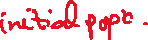 initial popn.